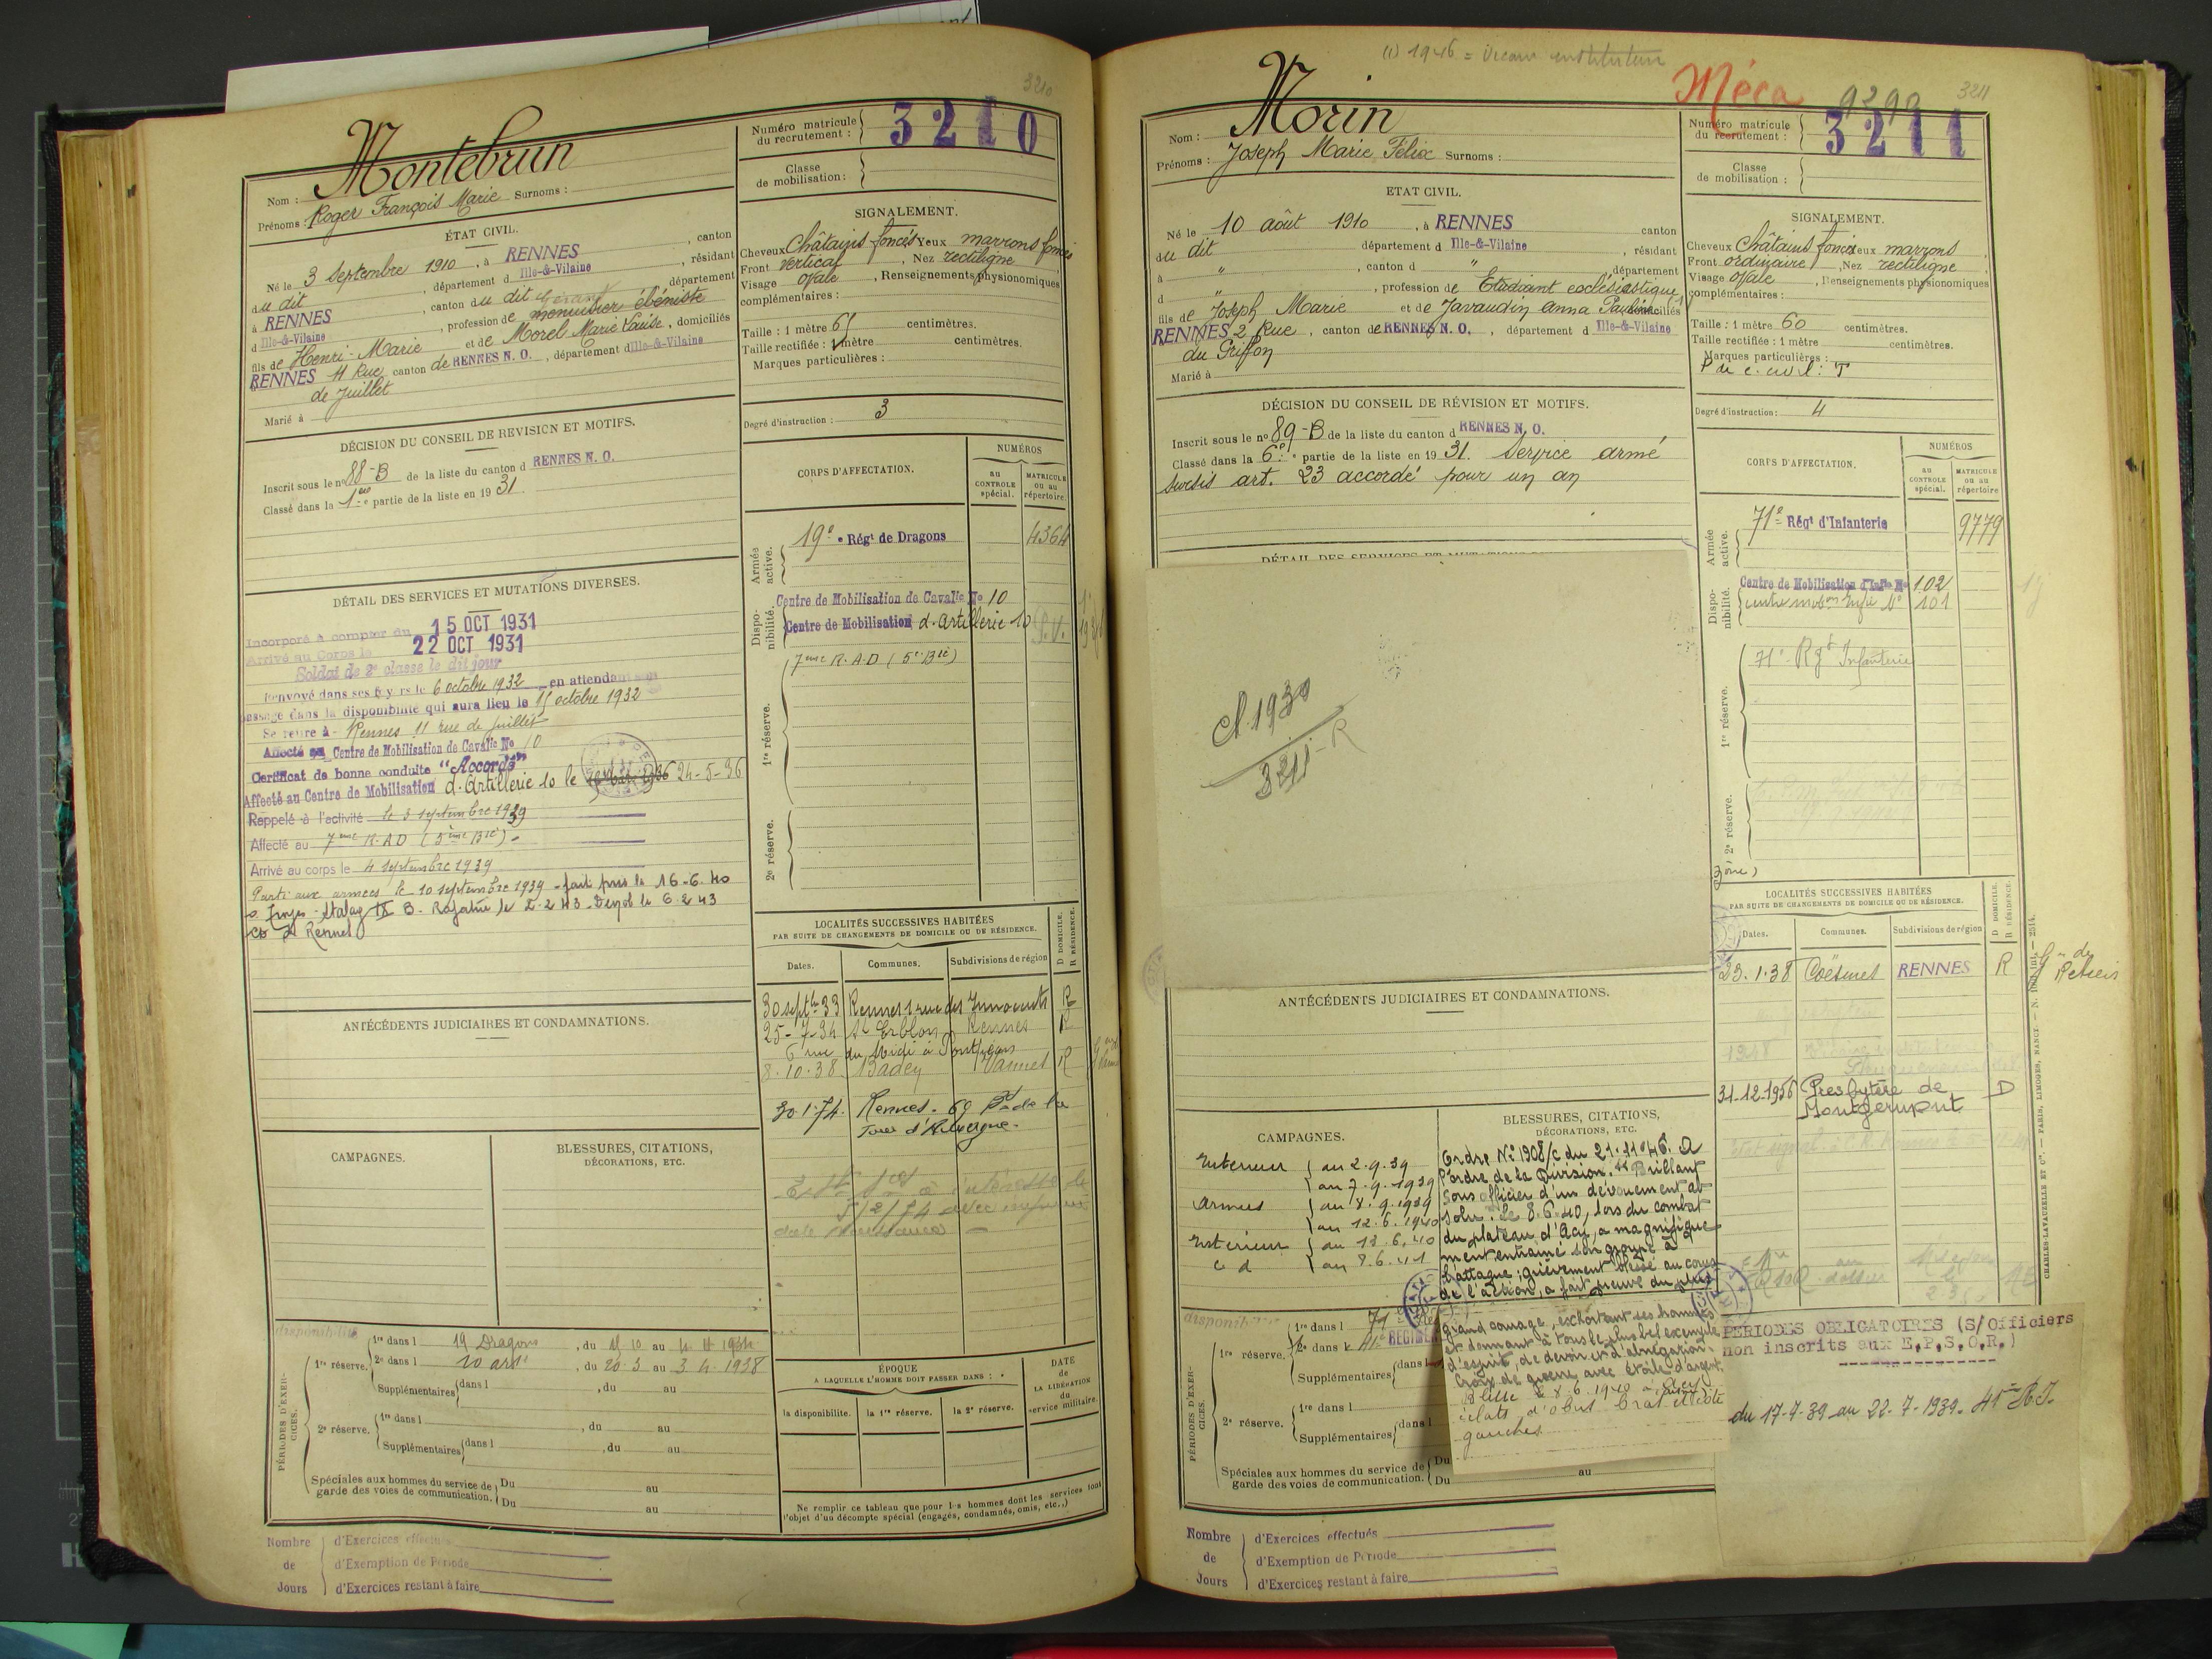 3210
Montebrun
Nom :
Prénoms : Roger François Marie Surnoms :
Numéro matricule du recrutement : 3210
Classe de mobilisation :
ÉTAT CIVIL.
Né le 3 Septembre 1910, à RENNES, canton
du dit, département d Ille-&-Vilaine, résidant
à RENNES, canton du dit, département
d Ille-&-Vilaine, profession de menuisier ébéniste
fils de Henri-Marie et de Morel Marie Louise, domiciliés
RENNES 11 Rue, canton de RENNES N. O., département d Ille-&-Vilaine
de Juillet
Marié à
SIGNALEMENT.
Cheveux Châtains foncés Yeux marrons foncés
Front vertical, Nez rectiligne
Visage Ovale, Renseignements physionomiques
complémentaires :
Taille : 1 mètre 65 centimètres.
Taille rectifiée : 1 mètre centimètres.
Marques particulières :
Degré d'instruction : 3
DÉCISION DU CONSEIL DE REVISION ET MOTIFS.
Inscrit sous le n° 88-B de la liste du canton d RENNES N. O.
Classé dans la 1re partie de la liste en 1931.
CORPS D'AFFECTATION.
NUMÉROS
au CONTROLE spécial.
MATRICULE ou au répertoire.
Armée active.
19e Régt de Dragons 4364
Disponibilité.
Centre de Mobilisation de Cavalie No 10
Centre de Mobilisation d'Artillerie 10
7eme R.A.D (5e Bie)
1re réserve.
2e réserve.
DÉTAIL DES SERVICES ET MUTATIONS DIVERSES.
Incorporé à compter du 15 OCT 1931
Arrivé au Corps le 22 OCT 1931
Soldat de 2e classe le dit jour
Renvoyé dans ses foyers le 6 octobre 1932 en attendant son
passage dans la disponibilité qui aura lieu le 15 octobre 1932
Se retire à Rennes 11 rue de Juillet
Affecté au Centre de Mobilisation de Cavalie No 10
Certificat de bonne conduite "Accordé"
Affecté au Centre de Mobilisation d'Artillerie 10 le 24-5-36
Rappelé à l'activité le 3 septembre 1939
Affecté au 7eme R.A.D (5ème Bie) -
Arrivé au corps le 4 Septembre 1939
Parti aux armées le 10 septembre 1939 - fait pris le 16-6-40
Stalag IX B. Rapatrié le 2.2 43 - Demob le 6.2 43
Rennes
LOCALITÉS SUCCESSIVES HABITÉES
PAR SUITE DE CHANGEMENTS DE DOMICILE OU DE RÉSIDENCE.
Dates. Communes. Subdivisions de région
D DOMICILE. R RÉSIDENCE.
30 septbre 33 Rennes 1 rue des Innocents R
25-7-34 St Erblon Rennes R
6 rue du Midi à Pontpéan
8.10.38 Baden Vannes R
30.1.74. Rennes. 69 Bd de la
Tour d'Auvergne.
ANTÉCÉDENTS JUDICIAIRES ET CONDAMNATIONS.
CAMPAGNES.
BLESSURES, CITATIONS,
DÉCORATIONS, ETC.
disponibilité
PÉRIODES D'EXERCICES.
1re réserve. 1re dans l 19 Dragons, du au
2e dans l 10 art, du 20.3 au 3 4.1938
Supplémentaires dans l, du au
2e réserve. 1re dans l, du au
Supplémentaires dans l, du au
Spéciales aux hommes du service de garde des voies de communication. Du au
Du au
ÉPOQUE
A LAQUELLE L'HOMME DOIT PASSER DANS :
la disponibilité. la 1re réserve. la 2e réserve.
DATE de LA LIBÉRATION du service militaire.
Ne remplir ce tableau que pour les hommes dont les services font
l'objet d'un décompte spécial (engagés, condamnés, omis, etc..)
Nombre de Jours
d'Exercices effectués
d'Exemption de Période
d'Exercices restant à faire
(1) 1946 = Vicaire instituteur
Méca 9299
3211
Nom : Morin
Prénoms : Joseph Marie Félix Surnoms :
Numéro matricule du recrutement : 3211
Classe de mobilisation :
ETAT CIVIL.
Né le 10 août 1910, à RENNES canton
du dit département d Ille-&-Vilaine, résidant
à ", canton d ", département
d ", profession de Etudiant ecclésiastique (1
fils de Joseph Marie et de Javaudin Anna Pauline domiciliés
RENNES 2 Rue, canton de RENNES N. O., département d Ille-&-Vilaine
du Griffon
Marié à
SIGNALEMENT.
Cheveux Châtains foncés Yeux marrons
Front ordinaire, Nez rectiligne
Visage Ovale, Renseignements physionomiques
complémentaires :
Taille : 1 mètre 60 centimètres.
Taille rectifiée : 1 mètre centimètres.
Marques particulières :
P de c. civil : T
Degré d'instruction : 4
DÉCISION DU CONSEIL DE RÉVISION ET MOTIFS.
Inscrit sous le n° 89-B de la liste du canton d RENNES N. O.
Classé dans la 6e partie de la liste en 1931. Service armé
Sursis art. 23 accordé pour un an
CORPS D'AFFECTATION.
NUMÉROS
au CONTROLE spécial.
MATRICULE ou au répertoire
Armée active.
71e Régt d'Infanterie 9779
Disponibilité.
Centre de Mobilisation d'Infie No 102
Centre mobon Infie No 101
1re réserve.
71e Rgt Infanterie
2e réserve.
DÉTAIL DES SERVICES ET MUTATIONS
cl. 1930
3211-R
LOCALITÉS SUCCESSIVES HABITÉES
PAR SUITE DE CHANGEMENTS DE DOMICILE OU DE RÉSIDENCE.
Dates. Communes. Subdivisions de région
D DOMICILE. R RÉSIDENCE.
23.1.38 Coësmes RENNES R
Gie de Retiers
31-12-1956 Presbytère de D
ANTÉCÉDENTS JUDICIAIRES ET CONDAMNATIONS.
CAMPAGNES.
Intérieur au 2.9.39
au 7.9.1939
Armées au 8.9.1939
au 12.6.1940
Intérieur au 13.6.40
c d au 8.6.41
BLESSURES, CITATIONS,
DÉCORATIONS, ETC.
Ordre No 1908/c du 21.11.46. A
l'ordre de la Division. "Brillant
Sous officier d'un dévouement ab
solu. Le 8.6.40, lors du combat
du plateau d'Acy, a magnifique
ment entrainé son groupe à
l'attaque ; grièvement blessé au cours
de l'action, a fait preuve du plus
grand courage, exhortant ses hommes
et donnant à tous le plus bel exemple
d'esprit, de devoir et d'abnégation.
Croix de guerre avec étoile d'argent.
Blessé le 8.6.1940 à Acy
éclats d'obus bras et côte
gauches
PERIODES OBLIGATOIRES (S/Officiers
non inscrits aux E.P.S.O.R.)
du 17-7-39 au 22-7-1939. 41e R.I.
disponibilité
PÉRIODES D'EXERCICES.
1re réserve. 1re dans l 71
2e dans l 41e REGIMENT
Supplémentaires dans l
2e réserve. 1re dans l
Supplémentaires dans l
Spéciales aux hommes du service de garde des voies de communication. Du au
Du
Nombre de Jours
d'Exercices effectués
d'Exemption de Période
d'Exercices restant à faire
CHARLES-LAVAUZELLE ET Cie. — PARIS, LIMOGES, NANCY.